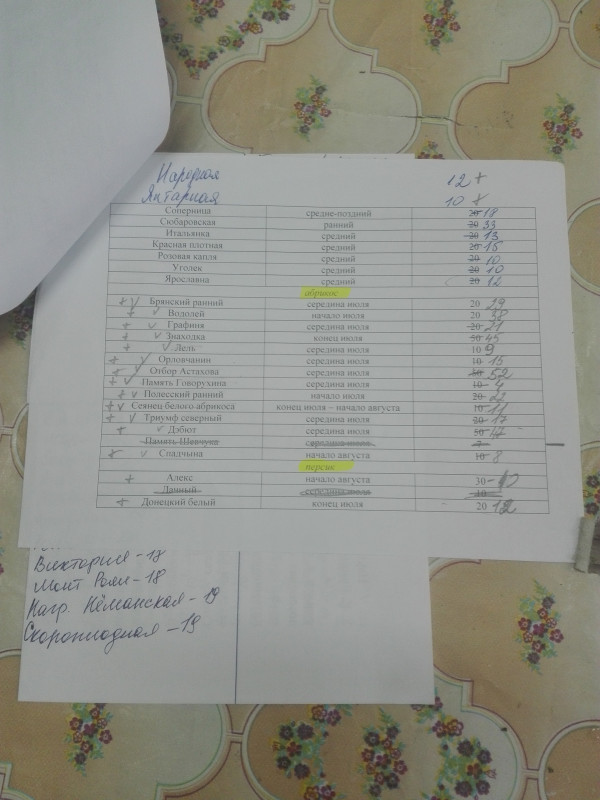 Народная 12
Янтарная 10
Соперница средне-поздний 20 18
Сюбаровская ранний 20 33
Итальянка средний 20 13
Красная плотная средний 20 15
Розовая капля средний 20 10
Уголек средний 20 10
Ярославна средний 20 12
абрикос
Брянский ранний середина июля 20 29
Водолей начало июля 20 38
Графиня середина июля 20 21
Знаходка конец июля 50 45
Лель середина июля 10 9
Орловчанин середина июля 10 15
Отбор Астахова середина июля 52
Память Говорухина середина июля 10 4
Полесский ранний начало июля 20
Сеянец белого абрикоса конец июля – начало августа 10 11
Триумф северный середина июля 20 17
Дэбют середина июля
Память Шевчука середина июля
Спадчына начало августа 10 8
персик
Алекс начало августа 30
Данный середина июля 10
Донецкий белый конец июля 20 12
Виктория - 17
Монт Роял - 18
Нагр. Нёманская - 19
Скороплодная - 19